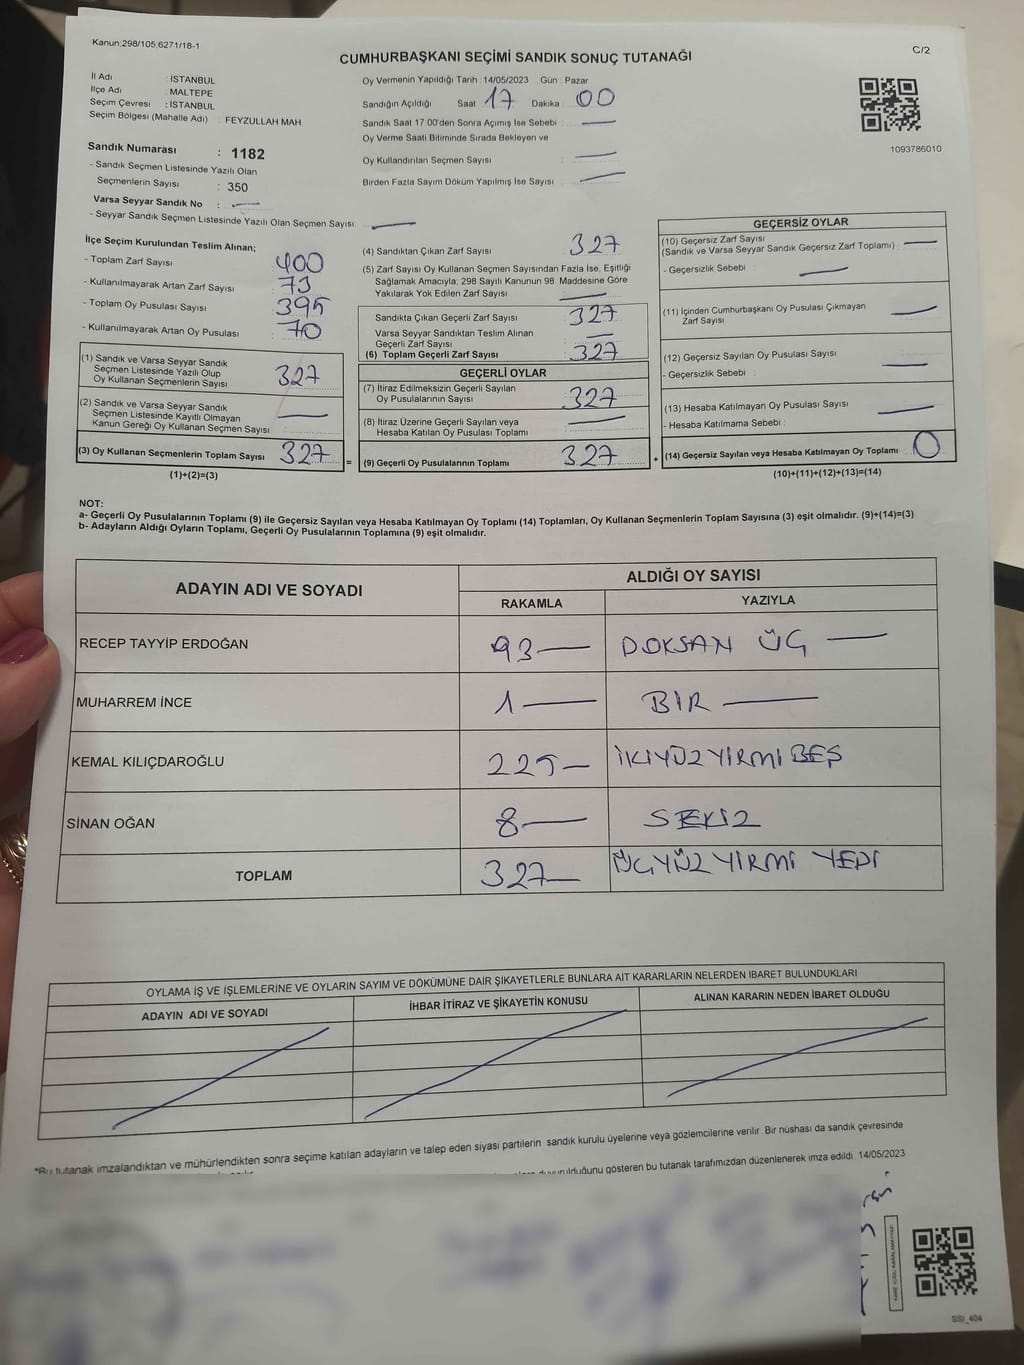 Kanun:298/105,6271/18-1
C/2
CUMHURBAŞKANI SEÇİMİ SANDIK SONUÇ TUTANAĞI
İl Adı : İSTANBUL
İlçe Adı : MALTEPE
Seçim Çevresi : İSTANBUL
Seçim Bölgesi (Mahalle Adı) : FEYZULLAH MAH.
Oy Vermenin Yapıldığı Tarih : 14/05/2023 Gün : Pazar
Sandığın Açıldığı Saat 17 Dakika 00
Sandık Saat 17:00'den Sonra Açımış İse Sebebi :
Oy Verme Saati Bitiminde Sırada Bekleyen ve
Oy Kullandırılan Seçmen Sayısı :
Birden Fazla Sayım Döküm Yapılmış İse Sayısı :
1093786010
Sandık Numarası : 1182
- Sandık Seçmen Listesinde Yazılı Olan
Seçmenlerin Sayısı : 350
Varsa Seyyar Sandık No :
- Seyyar Sandık Seçmen Listesinde Yazılı Olan Seçmen Sayısı :
İlçe Seçim Kurulundan Teslim Alınan;
- Toplam Zarf Sayısı 400
- Kullanılmayarak Artan Zarf Sayısı : 73
- Toplam Oy Pusulası Sayısı 395
- Kullanılmayarak Artan Oy Pusulası 70
(1) Sandık ve Varsa Seyyar Sandık
Seçmen Listesinde Yazılı Olup
Oy Kullanan Seçmenlerin Sayısı 327
(2) Sandık ve Varsa Seyyar Sandık
Seçmen Listesinde Kayıtlı Olmayan
Kanun Gereği Oy Kullanan Seçmen Sayısı
(3) Oy Kullanan Seçmenlerin Toplam Sayısı 327 =
(1)+(2)=(3)
(4) Sandıktan Çıkan Zarf Sayısı 327
(5) Zarf Sayısı Oy Kullanan Seçmen Sayısından Fazla İse, Eşitliği
Sağlamak Amacıyla; 298 Sayılı Kanunun 98. Maddesine Göre
Yakılarak Yok Edilen Zarf Sayısı
Sandıkta Çıkan Geçerli Zarf Sayısı 327
Varsa Seyyar Sandıktan Teslim Alınan
Geçerli Zarf Sayısı
(6) Toplam Geçerli Zarf Sayısı 327
GEÇERLİ OYLAR
(7) İtiraz Edilmeksizin Geçerli Sayılan
Oy Pusulalarının Sayısı 327
(8) İtiraz Üzerine Geçerli Sayılan veya
Hesaba Katılan Oy Pusulası Toplamı
(9) Geçerli Oy Pusulalarının Toplamı 327 +
GEÇERSİZ OYLAR
(10) Geçersiz Zarf Sayısı
(Sandık ve Varsa Seyyar Sandık Geçersiz Zarf Toplamı) :
- Geçersizlik Sebebi :
(11) İçinden Cumhurbaşkanı Oy Pusulası Çıkmayan
Zarf Sayısı
(12) Geçersiz Sayılan Oy Pusulası Sayısı
- Geçersizlik Sebebi :
(13) Hesaba Katılmayan Oy Pusulası Sayısı
- Hesaba Katılmama Sebebi :
(14) Geçersiz Sayılan veya Hesaba Katılmayan Oy Toplamı 0
(10)+(11)+(12)+(13)=(14)
NOT:
a- Geçerli Oy Pusulalarının Toplamı (9) ile Geçersiz Sayılan veya Hesaba Katılmayan Oy Toplamı (14) Toplamları, Oy Kullanan Seçmenlerin Toplam Sayısına (3) eşit olmalıdır. (9)+(14)=(3)
b- Adayların Aldığı Oyların Toplamı, Geçerli Oy Pusulalarının Toplamına (9) eşit olmalıdır.
ADAYIN ADI VE SOYADI
ALDIĞI OY SAYISI
RAKAMLA YAZIYLA
RECEP TAYYİP ERDOĞAN 93 DOKSAN ÜÇ
MUHARREM İNCE 1 BİR
KEMAL KILIÇDAROĞLU 225 İKİYÜZ YİRMİ BEŞ
SİNAN OĞAN 8 SEKİZ
TOPLAM 327 ÜÇYÜZ YİRMİ YEDİ
OYLAMA İŞ VE İŞLEMLERİNE VE OYLARIN SAYIM VE DÖKÜMÜNE DAİR ŞİKAYETLERLE BUNLARA AİT KARARLARIN NELERDEN İBARET BULUNDUKLARI
ADAYIN ADI VE SOYADI
İHBAR İTİRAZ VE ŞİKAYETİN KONUSU
ALINAN KARARIN NEDEN İBARET OLDUĞU
*Bu tutanak imzalandıktan ve mühürlendikten sonra seçime katılan adayların ve talep eden siyasi partilerin sandık kurulu üyelerine veya gözlemcilerine verilir Bir nüshası da sandık çevresinde
duyurulduğunu gösteren bu tutanak tarafımızdan düzenlenerek imza edildi. 14/05/2023
SSI_404